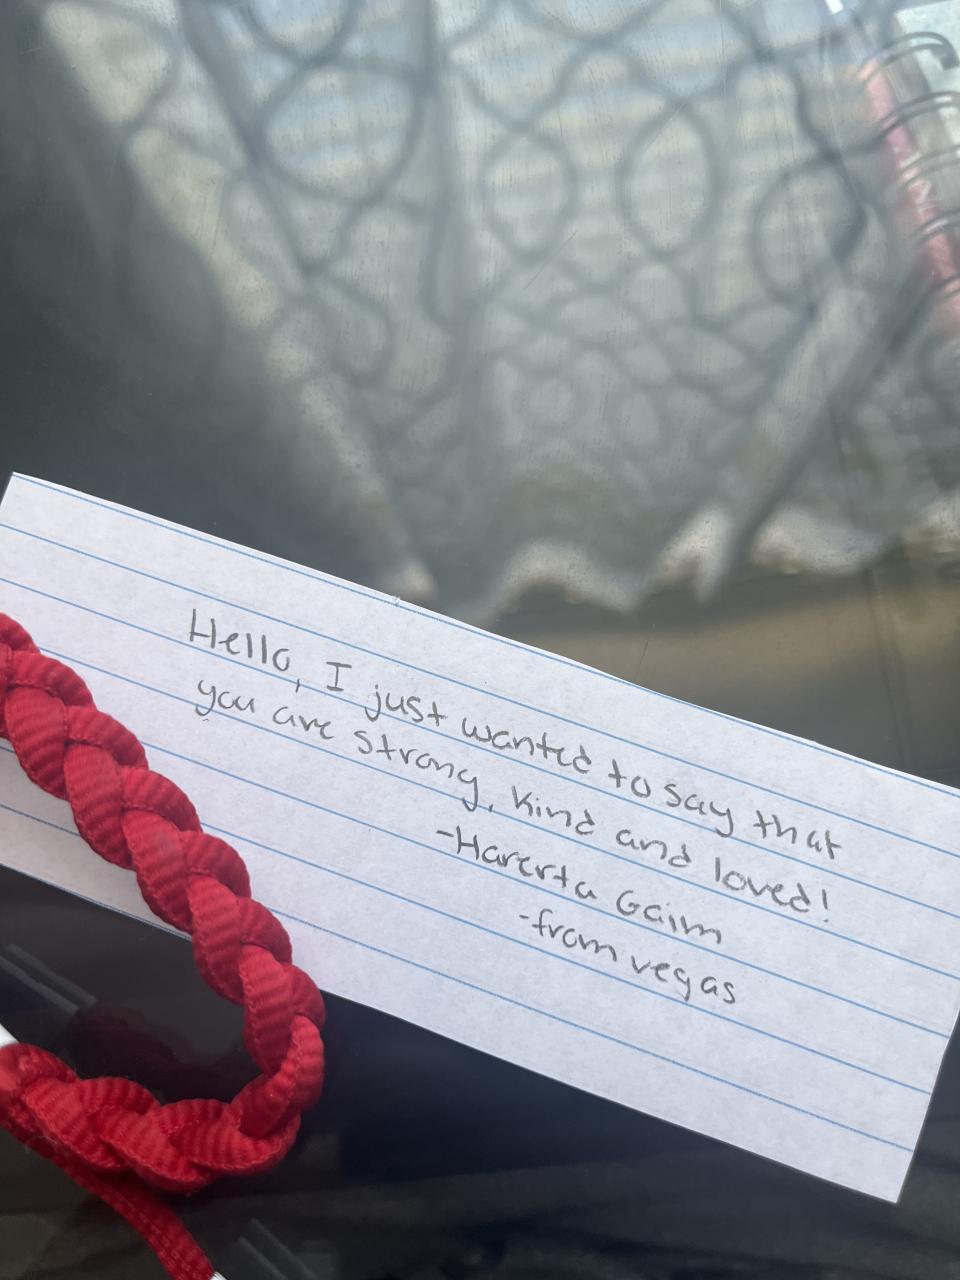 Hello, I just wanted to say that
you are strong, kind and loved!
-Harerta Gaim
-from vegas